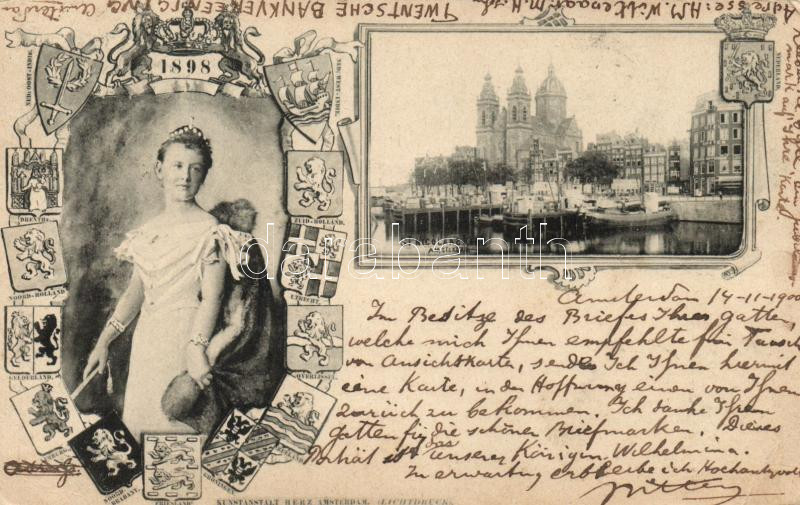 Adresse: H.M. Wittenaar M.H.zn
TWENTSCHE BANKVEREENIGING
Amsterdam
1898
NED: OOST-INDIE.
NED: WEST-INDIE.
NEDERLAND.
DRENTHE.
ZUID-HOLLAND.
NOORD-HOLLAND
UTRECHT.
GELDERLAND.
OVERIJSSEL.
LIMBURG
NOORD-BRABANT.
FRIESLAND.
GRONINGEN.
ZEELAND.
darabanth.com
KUNSTANSTALT HERZ AMSTERDAM. (LICHTDRUCK)
Amsterdam 14-11-1900
In Besitze des Briefes Ihres gatten,
welche mich Ihnen empfehlte für Tausch
von Ansichtkarte, sende Ich Ihnen hiermit
eene Karte, in der Hoffnung einen von Ihnen
zurück zu bekommen. Ich danke Ihrem
gatten für die schönen Briefmarken. Dieses
Portrait ist das unserer Königin Wilhelmina.
In erwartung erbleibe ich Hochachtvoll